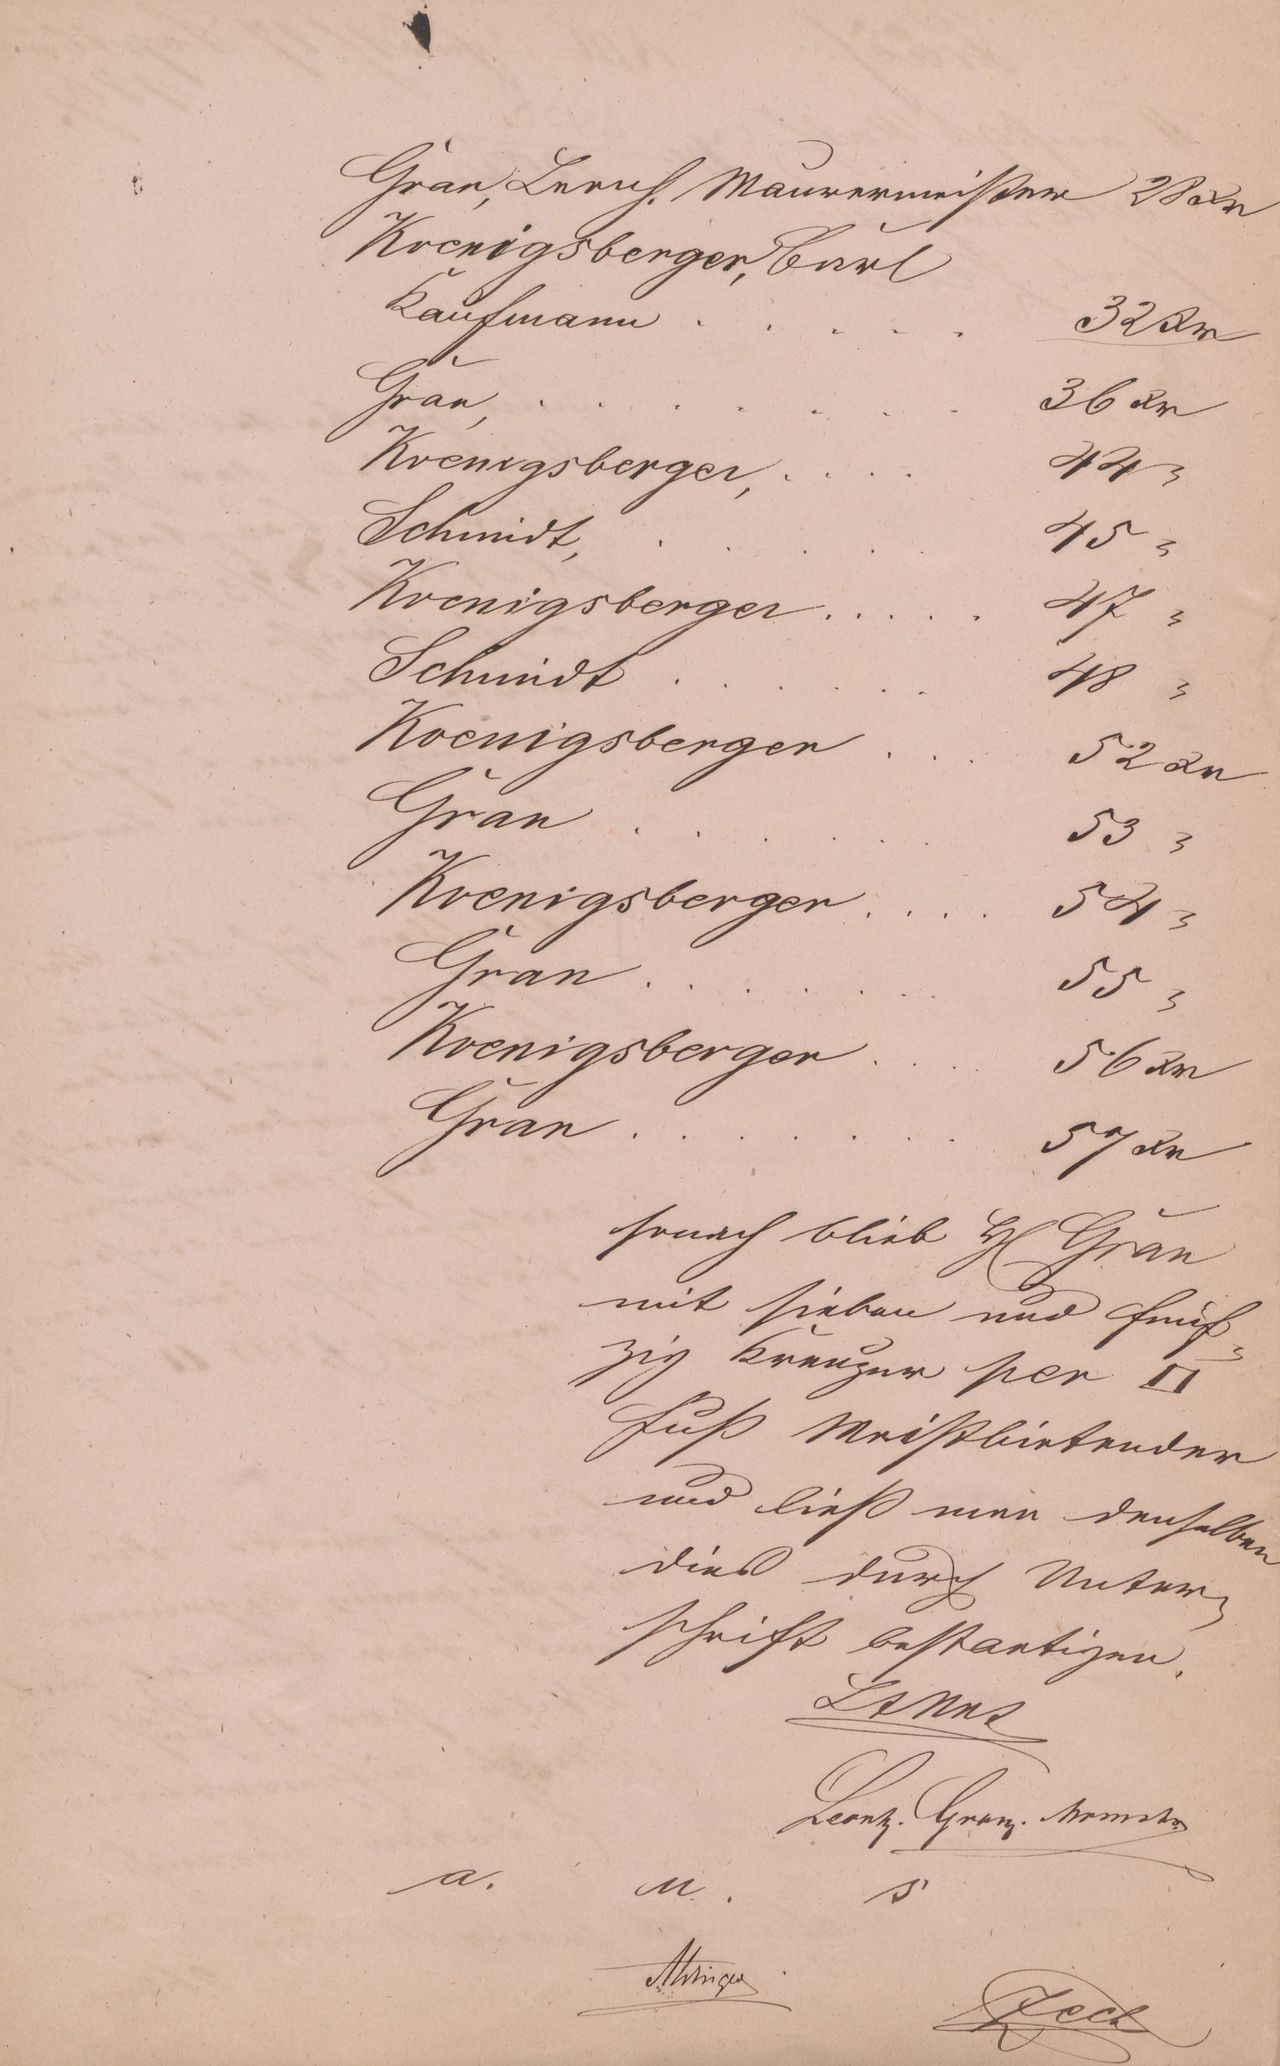 Gran, Leonh. Maurermeister 28 Kr
Koenigsberger, Carl
Kaufmann . . . . . . 32 Kr
Gran, . . . . . . . . . 36 Kr
Koenigsberger, . . . . 44 "
Schmidt, . . . . . . 45 "
Koenigsberger . . . . . 47 "
Schmidt . . . . . . 48 "
Koenigsberger . . . 52 Kr
Gran . . . . . . . 53 "
Koenigsberger . . . . 54 "
Gran . . . . . . . 55 "
Koenigsberger . . . 56 Kr
Gran . . . . . . . 57 Kr
sonach blieb H Gran
mit sieben und fünf=
zig Kreuzer per □
Fuß Meistbietender
und ließ man denselben
dies durch Unter=
schrift bestaetigen.
Leonh. Gran.
a. u. s
Zech